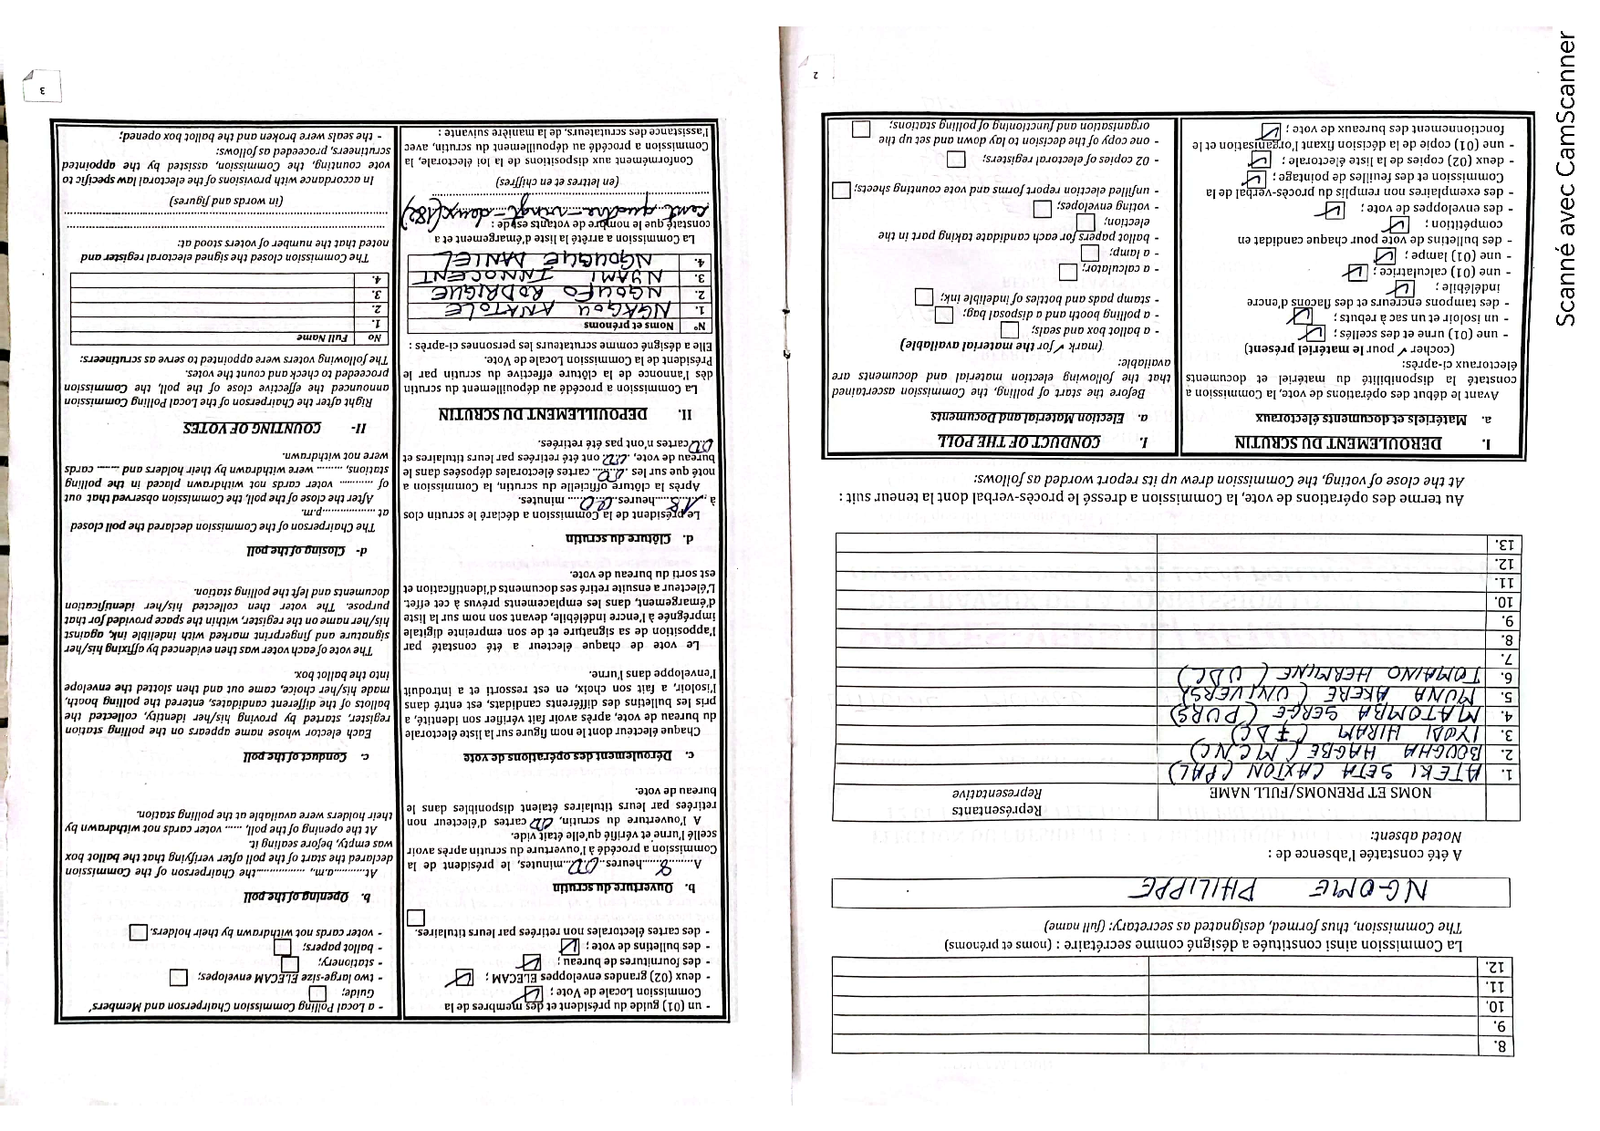 2
8.
9.
10.
11.
12.
La Commission ainsi constituée a désigné comme secrétaire : (noms et prénoms)
The Commission, thus formed, designated as secretary: (full name)
NGOME PHILIPPE
A été constatée l'absence de :
Noted absent:
NOMS ET PRENOMS/FULL NAME Représentants
Representative
1. ATEKI SETA CAXTON (PAL)
2. BOUGHA HAGBE (MCNC)
3. IYODI HIRAM (FDC)
4. MATOMBA SERGE (PURS)
5. MUNA AKERE (UNIVERS)
6. TOMAINO HERMINE (UDC)
7.
8.
9.
10.
11.
12.
13.
Au terme des opérations de vote, la Commission a dressé le procès-verbal dont la teneur suit :
At the close of voting, the Commission drew up its report worded as follows:
I. DEROULEMENT DU SCRUTIN
a. Matériels et documents électoraux
Avant le début des opérations de vote, la Commission a
constaté la disponibilité du matériel et documents
électoraux ci-après:
(cocher ✓ pour le matériel présent)
- une (01) urne et des scellés;
- un isoloir et un sac à rebuts ;
- des tampons encreurs et des flacons d'encre
indélébile ;
- une (01) calculatrice ;
- une (01) lampe ;
- des bulletins de vote pour chaque candidat en
compétition ;
- des enveloppes de vote ;
- des exemplaires non remplis du procès-verbal de la
Commission et des feuilles de pointage ;
- deux (02) copies de la liste électorale ;
- une (01) copie de la décision fixant l'organisation et le
fonctionnement des bureaux de vote ;
I. CONDUCT OF THE POLL
a. Election Material and Documents
Before the start of polling, the Commission ascertained
that the following election material and documents are
available:
(mark ✓ for the material available)
- a ballot box and seals;
- a polling booth and a disposal bag;
- stamp pads and bottles of indelible ink;
- a calculator;
- a lamp;
- ballot papers for each candidate taking part in the
election;
- voting envelopes;
- unfilled election report forms and vote counting sheets;
- 02 copies of electoral registers;
- one copy of the decision to lay down and set up the
organisation and functioning of polling stations;
3
- un (01) guide du président et des membres de la
Commission Locale de Vote ;
- deux (02) grandes enveloppes ELECAM ;
- des fournitures de bureau ;
- des bulletins de vote ;
- des cartes électorales non retirées par leurs titulaires.
b. Ouverture du scrutin
A ....8....heures..00...minutes, le président de la
Commission a procédé à l'ouverture du scrutin après avoir
scellé l'urne et vérifié qu'elle était vide.
A l'ouverture du scrutin, 00 cartes d'électeur non
retirées par leurs titulaires étaient disponibles dans le
bureau de vote.
c. Déroulement des opérations de vote
Chaque électeur dont le nom figure sur la liste électorale
du bureau de vote, après avoir fait vérifier son identité, a
pris les bulletins des différents candidats, est entré dans
l'isoloir, a fait son choix, en est ressorti et a introduit
l'enveloppe dans l'urne.
Le vote de chaque électeur a été constaté par
l'apposition de sa signature et de son empreinte digitale
imprégnée à l'encre indélébile, devant son nom sur la liste
d'émargement, dans les emplacements prévus à cet effet.
L'électeur a ensuite retiré ses documents d'identification et
est sorti du bureau de vote.
d. Clôture du scrutin
Le président de la Commission a déclaré le scrutin clos
à ..18...heures..00... minutes.
Après la clôture officielle du scrutin, la Commission a
noté que sur les ..00... cartes électorales déposées dans le
bureau de vote, ..00 ont été retirées par leurs titulaires et
00 cartes n'ont pas été retirées.
II. DEPOUILLEMENT DU SCRUTIN
La Commission a procédé au dépouillement du scrutin
dès l'annonce de la clôture effective du scrutin par le
Président de la Commission Locale de Vote.
Elle a désigné comme scrutateurs les personnes ci-après :
N° Noms et prénoms
1. NGAGOU ANATOLE
2. NGOUFO RODRIGUE
3. NYAMI INNOCENT
4. NGOUGUE DANIEL
La Commission a arrêté la liste d'émargement et a
constaté que le nombre de votants est de :
cent quatre-vingt-deux (182)
(en lettres et en chiffres)
Conformément aux dispositions de la loi électorale, la
Commission a procédé au dépouillement du scrutin, avec
l'assistance des scrutateurs, de la manière suivante :
- a Local Polling Commission Chairperson and Members'
Guide;
- two large-size ELECAM envelopes;
- stationery;
- ballot papers;
- voter cards not withdrawn by their holders.
b. Opening of the poll
At..........a.m., ...............the Chairperson of the Commission
declared the start of the poll after verifying that the ballot box
was empty, before sealing it.
At the opening of the poll, ...... voter cards not withdrawn by
their holders were available at the polling station.
c. Conduct of the poll
Each elector whose name appears on the polling station
register, started by proving his/her identity, collected the
ballots of the different candidates, entered the polling booth,
made his/her choice, came out and then slotted the envelope
into the ballot box.
The vote of each voter was then evidenced by affixing his/her
signature and fingerprint marked with indelible ink, against
his/her name on the register, within the space provided for that
purpose. The voter then collected his/her identification
documents and left the polling station.
d- Closing of the poll
The Chairperson of the Commission declared the poll closed
at .................p.m.
After the close of the poll, the Commission observed that out
of .......... voter cards not withdrawn placed in the polling
stations, ........ were withdrawn by their holders and ...... cards
were not withdrawn.
II- COUNTING OF VOTES
Right after the Chairperson of the Local Polling Commission
announced the effective close of the poll, the Commission
proceeded to check and count the votes.
The following voters were appointed to serve as scrutineers:
No Full Name
1.
2.
3.
4.
The Commission closed the signed electoral register and
noted that the number of voters stood at:
(in words and figures)
In accordance with provisions of the electoral law specific to
vote counting, the Commission, assisted by the appointed
scrutineers, proceeded as follows:
- the seals were broken and the ballot box opened;
Scanné avec CamScanner